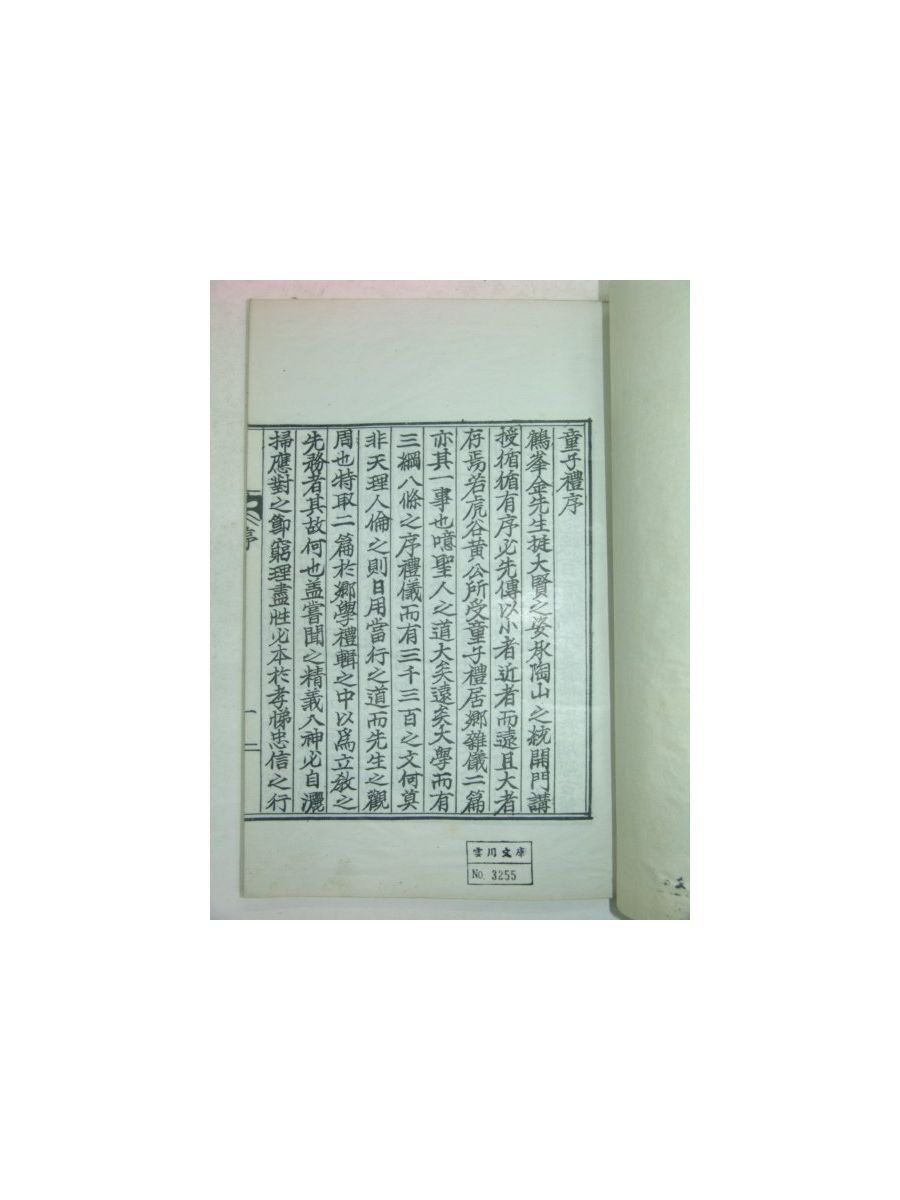 童子禮序
鶴峯金先生挺大賢之姿承陶山之統開門講
授循循有序必先傳以小者近者而遠且大者
存焉若虎谷黃公所受童子禮居鄕雜儀二篇
亦其一事也噫聖人之道大矣遠矣大學而有
三綱八條之序禮儀而有三千三百之文何莫
非天理人倫之則日用當行之道而先生之觀
周也特取二篇於鄕學禮輯之中以爲立敎之
先務者其故何也盖嘗聞之精義入神必自灑
掃應對之節窮理盡性必本於孝悌忠信之行
序
一
雲川文庫
No. 3255